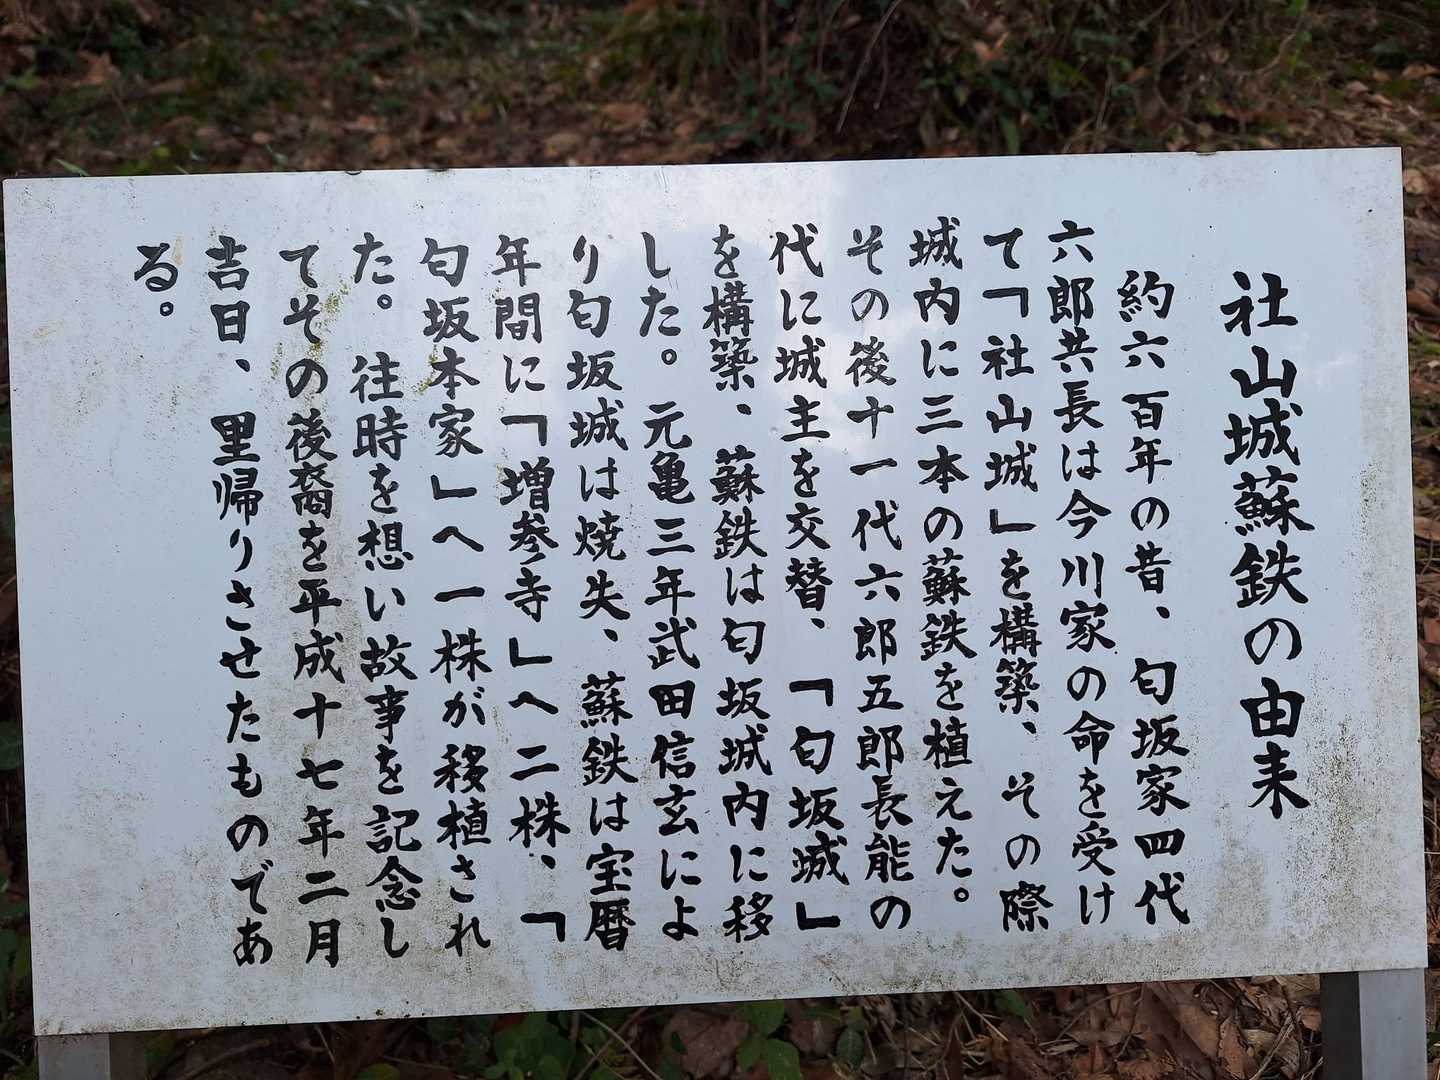 社山城蘇鉄の由来
約六百年の昔、匂坂家四代
六郎共長は今川家の命を受け
て「社山城」を構築、その際
城内に三本の蘇鉄を植えた。
その後十一代六郎五郎長能の
代に城主を交替、「匂坂城」
を構築、蘇鉄は匂坂城内に移
した。元亀三年武田信玄によ
り匂坂城は焼失、蘇鉄は宝暦
年間に「増参寺」へ二株、「
匂坂本家」へ一株が移植され
た。往時を想い故事を記念し
てその後裔を平成十七年二月
吉日、里帰りさせたものであ
る。